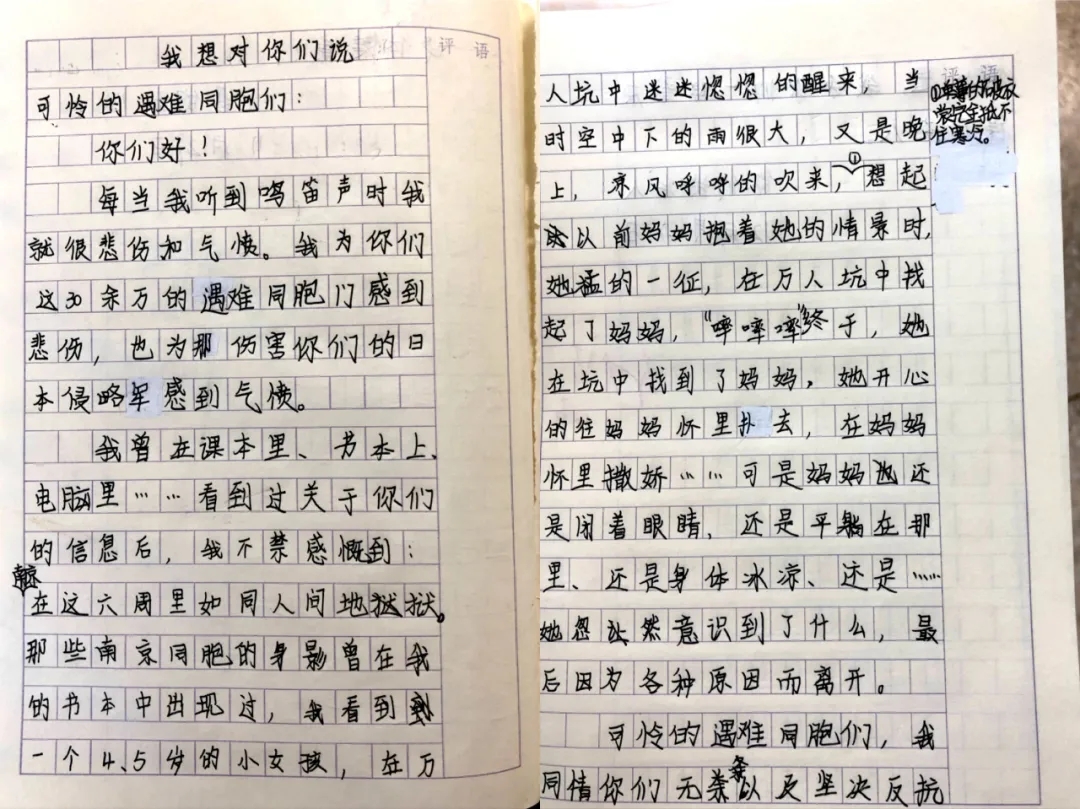 我想对你们说
可怜的遇难同胞们：
你们好！
每当我听到鸣笛声时我
就很悲伤和气愤。我为你们
这30余万的遇难同胞们感到
悲伤，也为那伤害你们的日
本侵略军感到气愤。
我曾在课本里、书本上、
电脑里……看到过关于你们
的信息后，我不禁感慨到：
在这六周里如同人间地狱。
那些南京同胞的身影曾在我
的书本中出现过，我看到
一个4、5岁的小女孩，在万
评语
人坑中迷迷惚惚的醒来，当
时空中下的雨很大，又是晚
上，寒风呼呼的吹来，①想起
以前妈妈抱着她的情景时，
她猛的一征，在万人坑中找
起了妈妈，“啐啐啐”终于，她
在坑中找到了妈妈，她开心
的往妈妈怀里扑去，在妈妈
怀里撒娇……可是妈妈还
是闭着眼睛，还是平躺在那
里、还是身体冰凉、还是……
她忽然意识到了什么，最
后因为各种原因而离开。
可怜的遇难同胞们，我
同情你们无条以及坚决反抗
评语
①单薄的破衣
裳完全抵不
住寒冷。